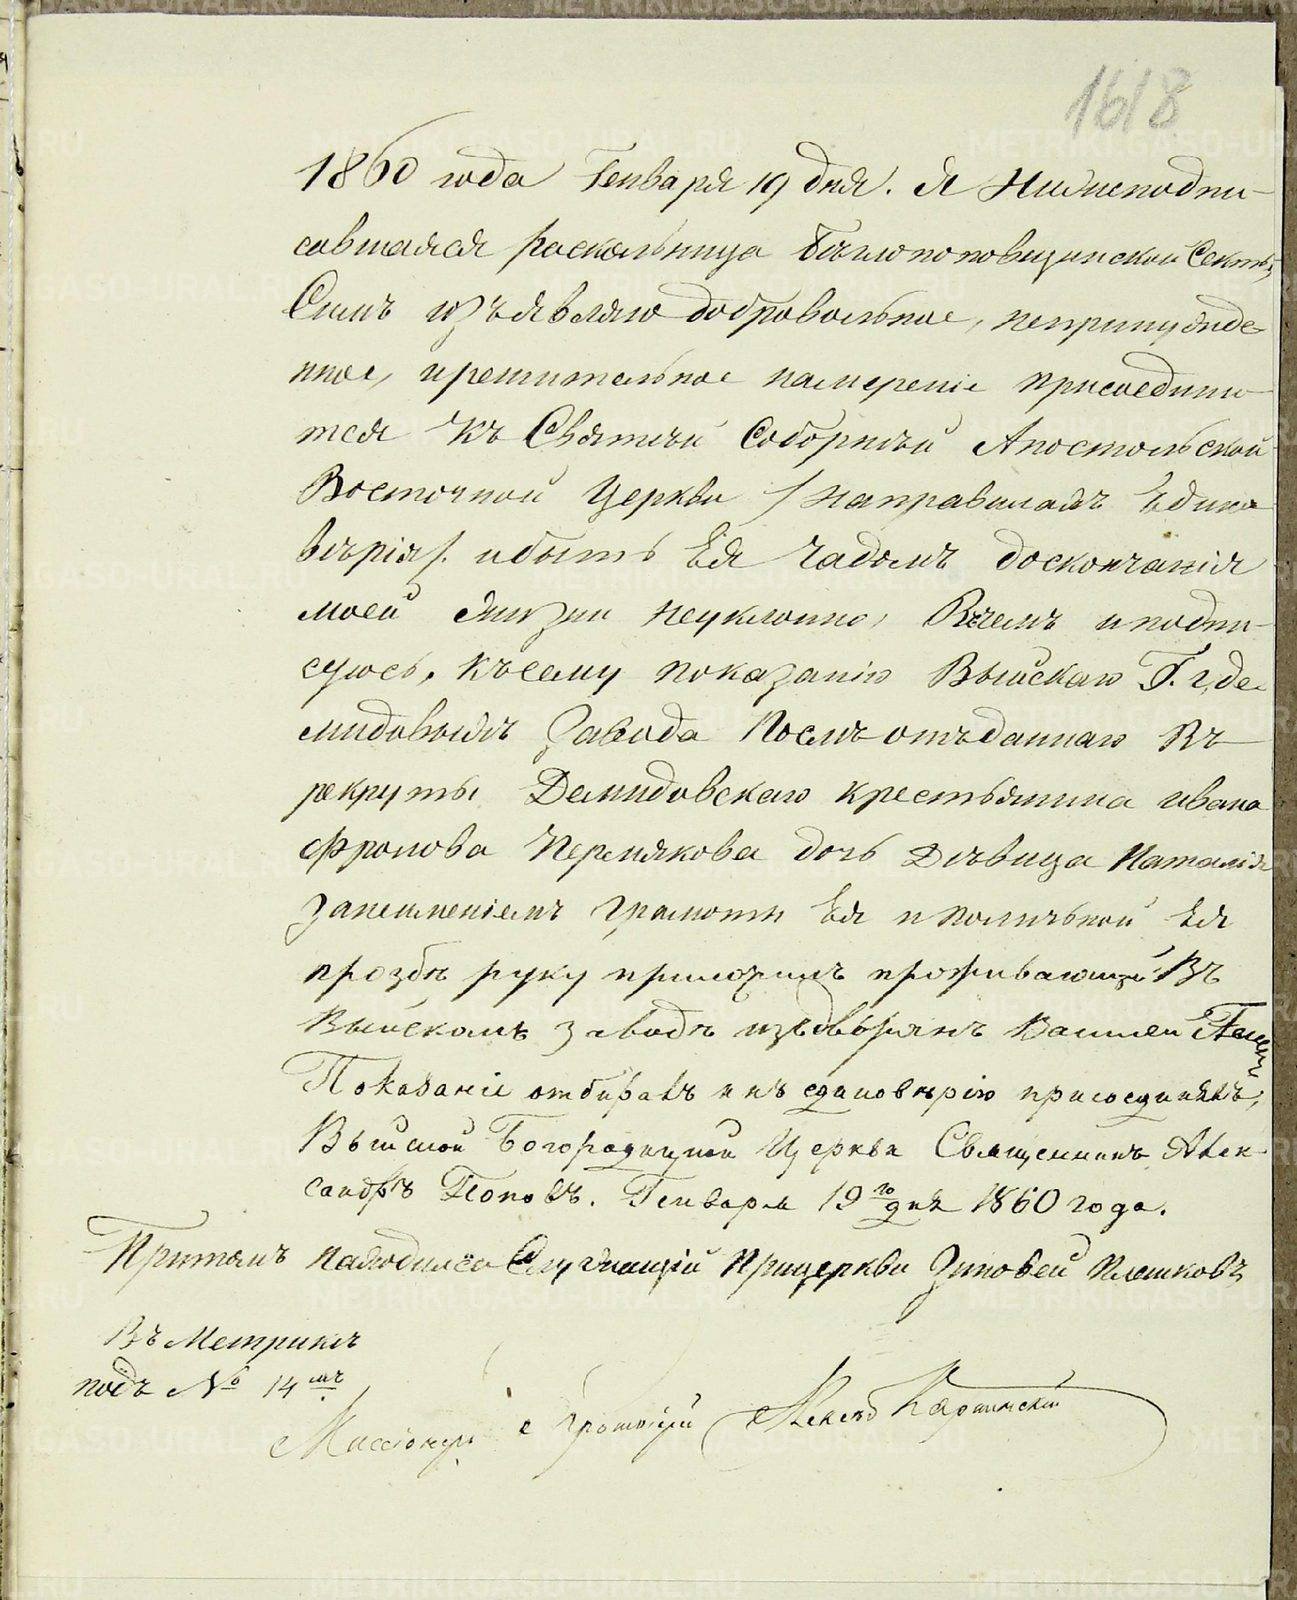 1618
1860 года Генваря 19 дня. Я Нижеподпи-
савшаяся раскольница Беглопоповщинской Секты,
Симъ изъявляю добровольное, непринужде-
нное, и решительное намерение присоедини-
тся къ Святей Соборней Апостольской
Восточной Церкви /направилахъ Едино
верия/. и быть Ея чадомъ доскончания
моей жизни неуклонно, Вчемъ и подпи-
суюсь, къ сему показанию Выйскаго Г. г, де-
мидовыхъ Завода После отъданнаго въ
рекруты Демидовскаго крестьянина ивана
фролова Пермякова дочь Девица Наталия
занеименіемъ грамоты Ея и поличьной Ея
прозбе руку приложилъ проживающий въ
Выйскомъ заводе издворянъ
Показаніе отбиралъ и къ единоверію присоединялъ,
Выйской Богородицкой Церкви Священникъ Алек-
сандръ Поповъ. Генваря 19го дня 1860 года.
Притомъ находился Служащій Прицеркви Зиновей Плешковъ
Въ Метрике
подъ № 14мъ
Миссіонеръ Протоіерей Карпинский